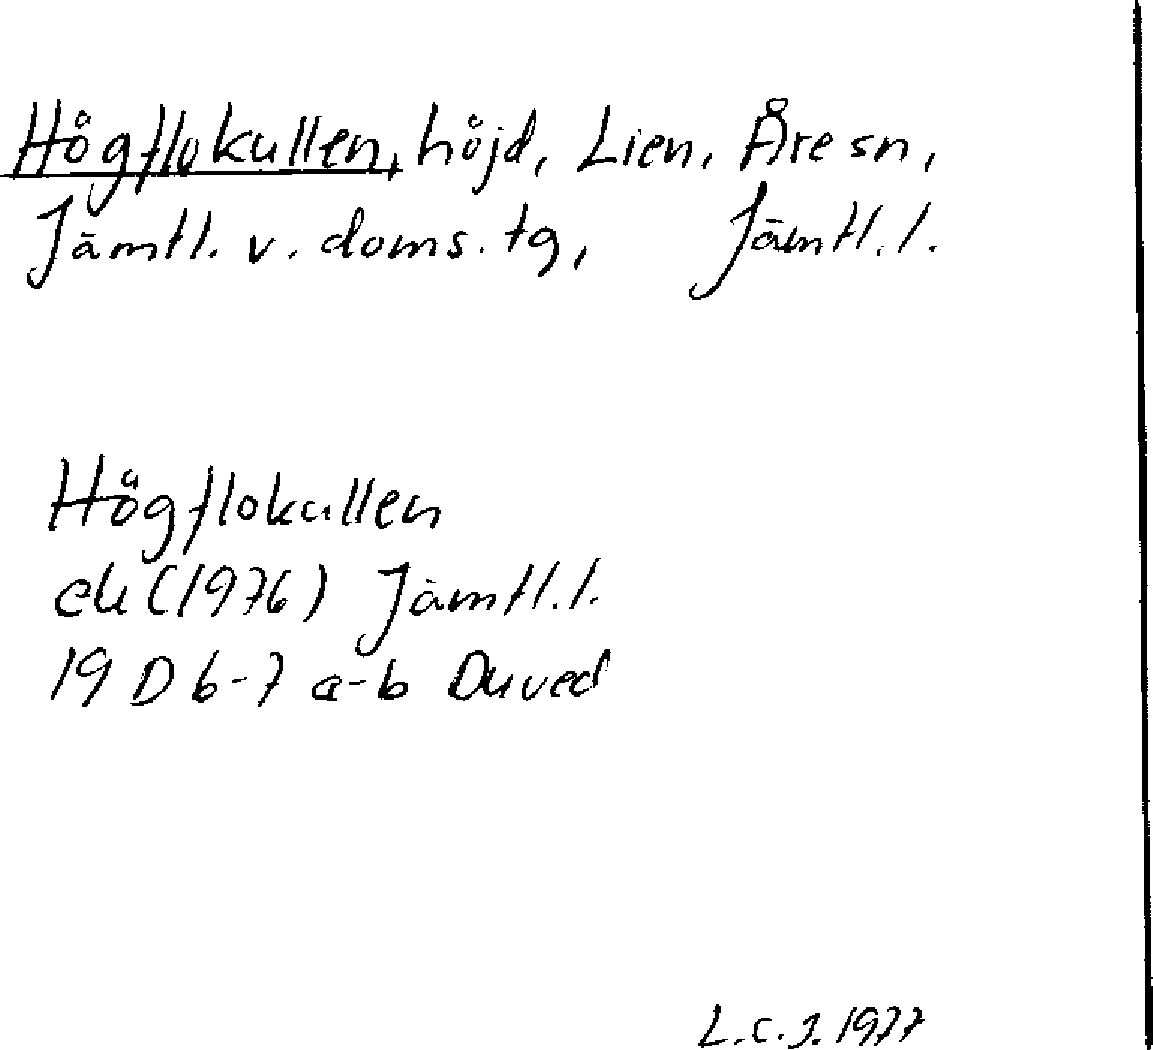 Högflokullen, höjd, Lien, Åre sn,
Jämtl. v. doms. tg, Jämtl. l.
Högflokullen
ek (1976) Jämtl. l.
19 D 6-7 a-b Duved
L.C.J. 1977